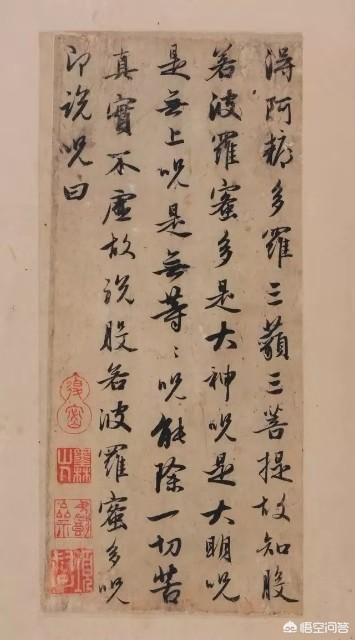 得阿耨多羅三藐三菩提故知般
若波羅蜜多是大神呪是大明呪
是無上呪是無等〻呪能除一切苦
真實不虛故說般若波羅蜜多呪
即說呪曰
悟空问答